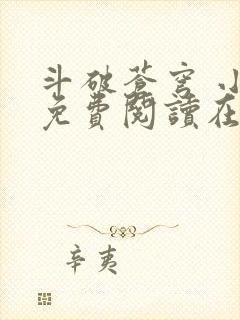 斗破蒼穹 小
免費閱讀在
辛夷